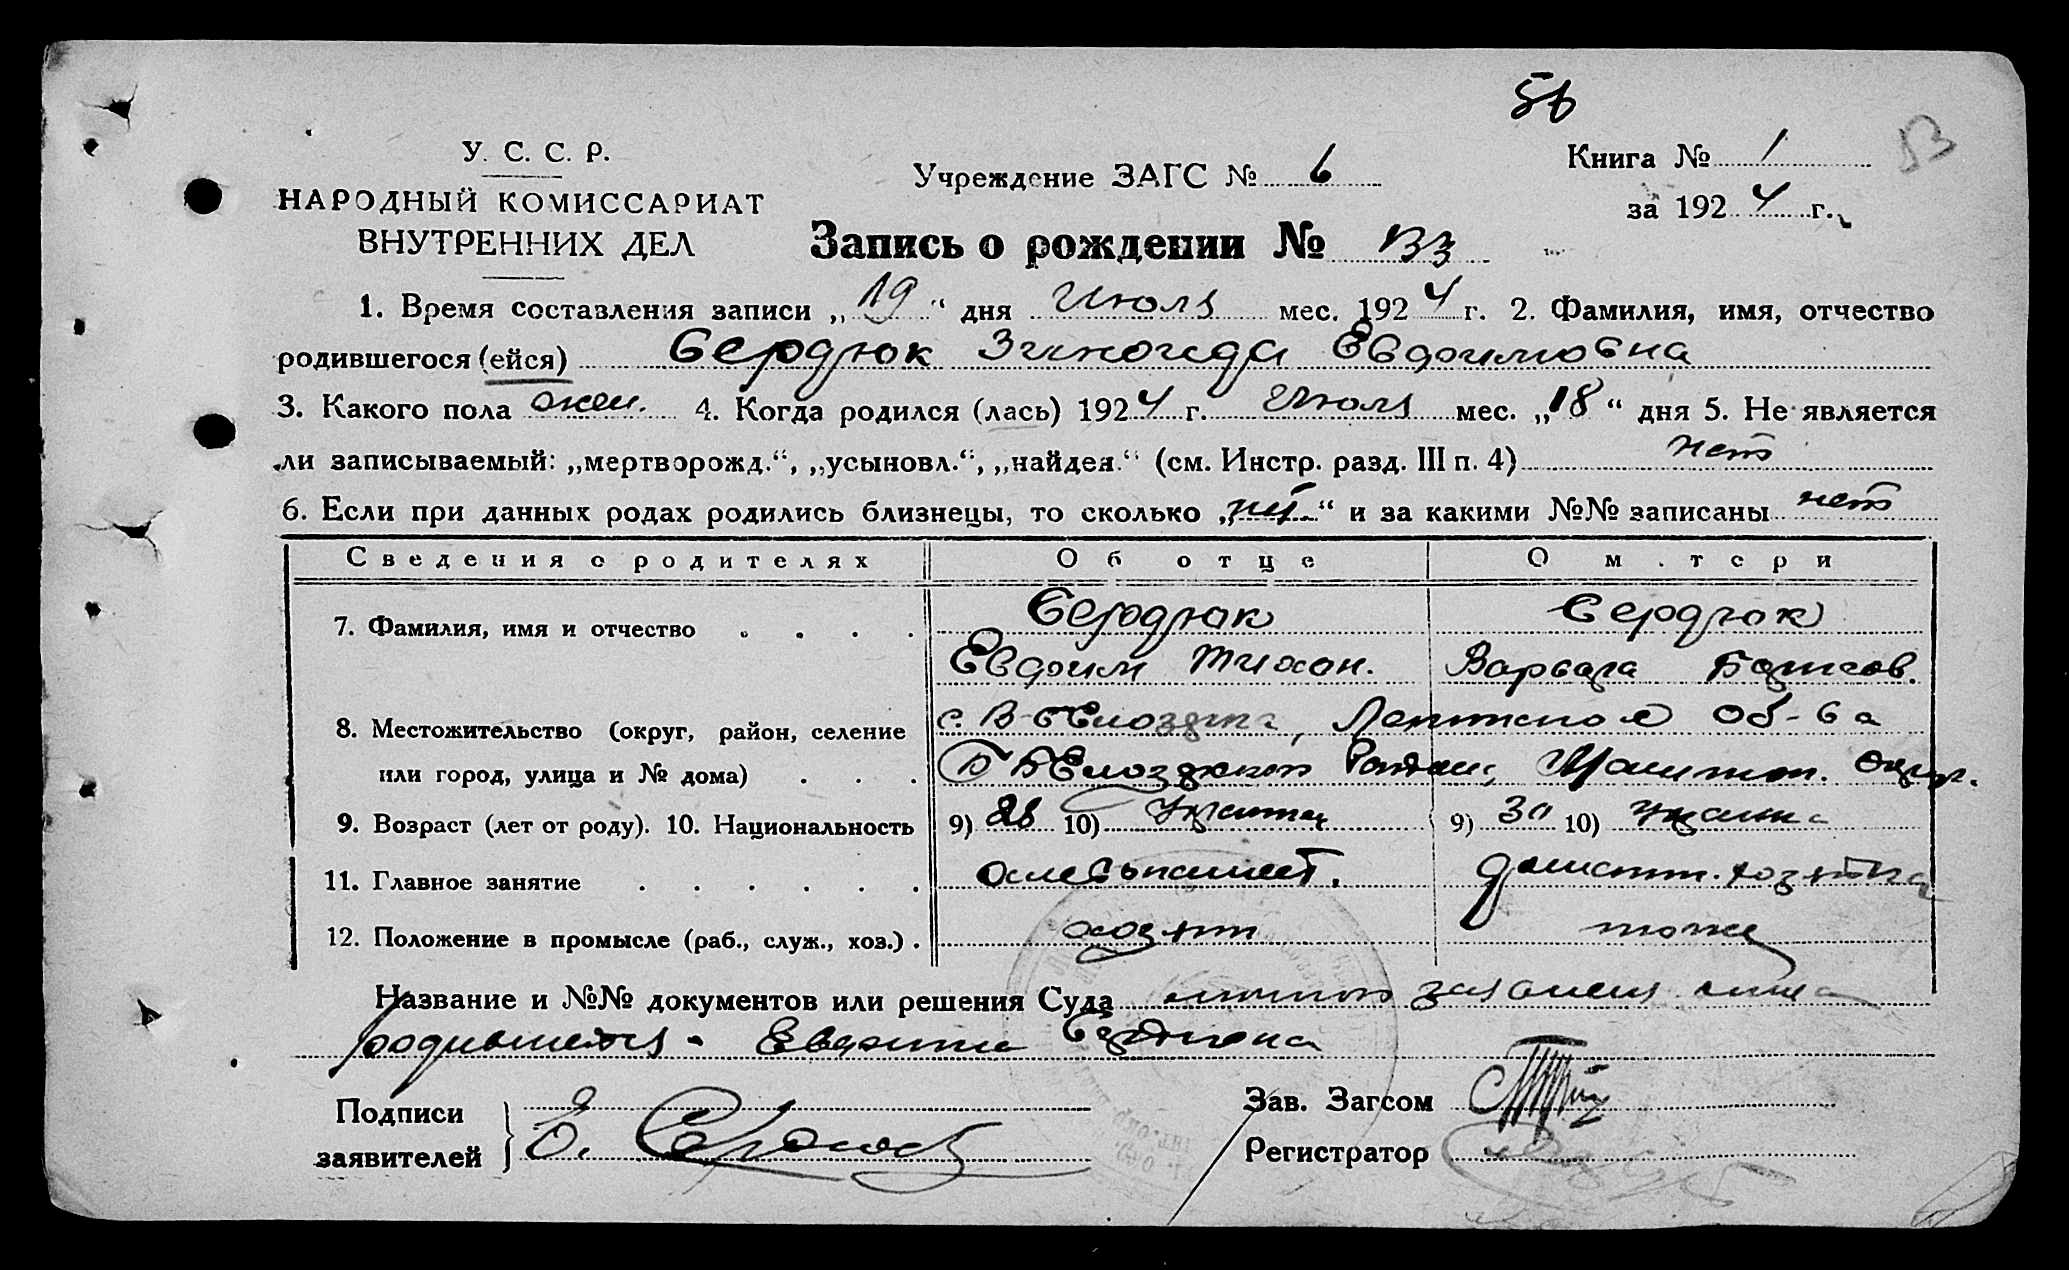 56
У. С. С. Р.
НАРОДНЫЙ КОМИССАРИАТ
ВНУТРЕННИХ ДЕЛ
Учреждение ЗАГС № 6
Книга № 1
за 1924 г.
Запись о рождении №
1. Время составления записи „19“ дня Июля мес. 1924 г. 2. Фамилия, имя, отчество
родившегося (ейся) Сердюк Зинаида Евдокимовна
3. Какого пола жен. 4. Когда родился (лась) 1924 г. Июля мес. „18“ дня 5. Не является
ли записываемый: „мертворожд.“, „усыновл.“, „найден.“ (см. Инстр. разд. III п. 4) нет
6. Если при данных родах родились близнецы, то сколько „нет“ и за какими №№ записаны нет
Сведения о родителях Об отце О м.тери
7. Фамилия, имя и отчество Сердюк Сердюк
Евдоким Тихон. Варвара
8. Местожительство (округ, район, селение
или город, улица и № дома)
9. Возраст (лет от роду). 10. Национальность 9) 28 10) 9) 30 10)
11. Главное занятие домашн. хозяйка
12. Положение в промысле (раб., служ., хоз.) хозяин тоже
Название и №№ документов или решения Суда личное
Евдокима Сердюка
Подписи
заявителей Е. Сердюк
Зав. Загсом
Регистратор